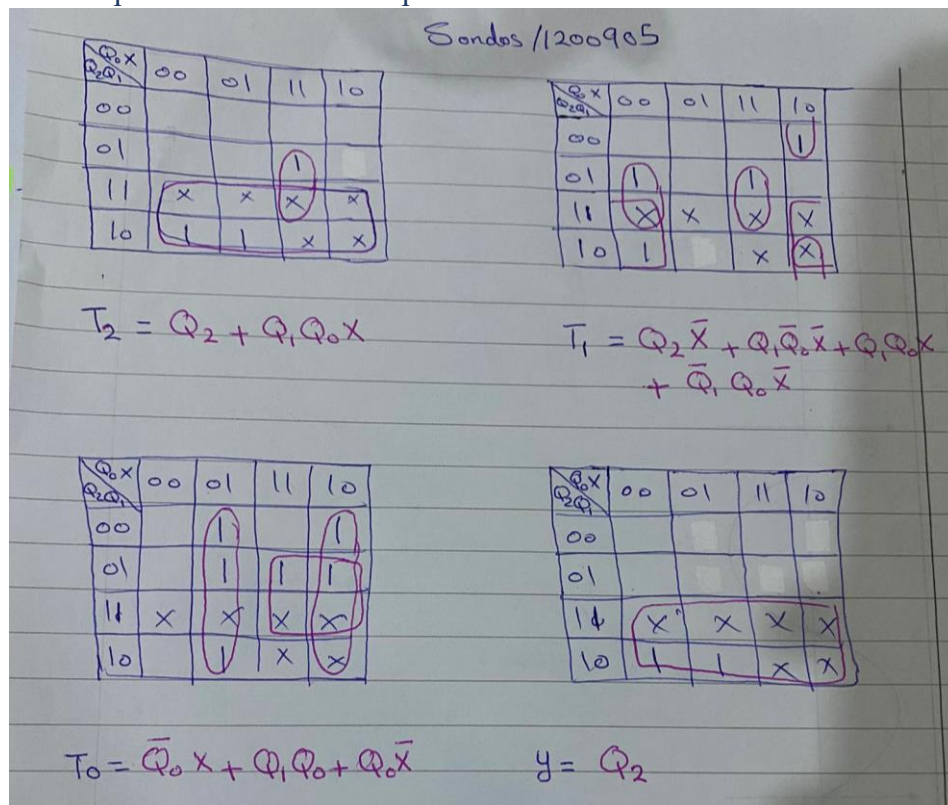 Sondos / 1200905
Q₀X
Q₂Q₁ 00 01 11 10
00
01 1
11 x x x x
10 1 1 x x
T₂ = Q₂ + Q₁Q₀X
Q₀X
Q₂Q₁ 00 01 11 10
00 1
01 1 1
11 x x x x
10 1 x x
T₁ = Q₂X̄ + Q₁Q̄₀X̄ + Q₁Q₀X
+ Q̄₁Q₀X̄
Q₀X
Q₂Q₁ 00 01 11 10
00 1 1
01 1 1 1
11 x x x x
10 1 x x
T₀ = Q̄₀X + Q₁Q₀ + Q₀X̄
Q₀X
Q₂Q₁ 00 01 11 10
00
01
11 x x x x
10 1 1 x x
y = Q₂